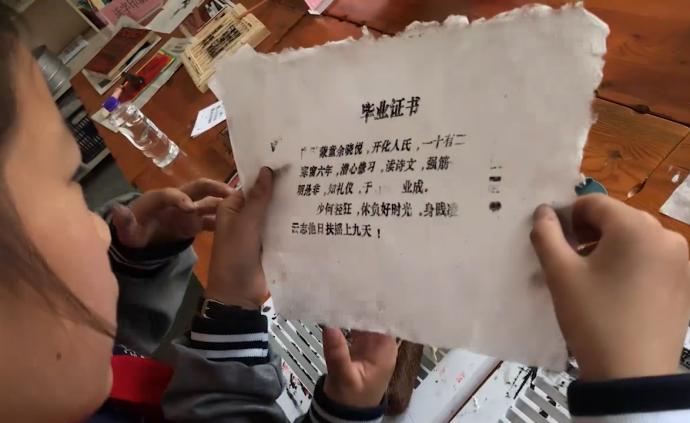 毕业证书
蒙童余晓悦，开化人氏，一十有二
寒窗六年，潜心修习，读诗文，强筋
知礼仪，于 业成。
少何轻狂，休负好时光，身贱凌
云志他日扶摇上九天！